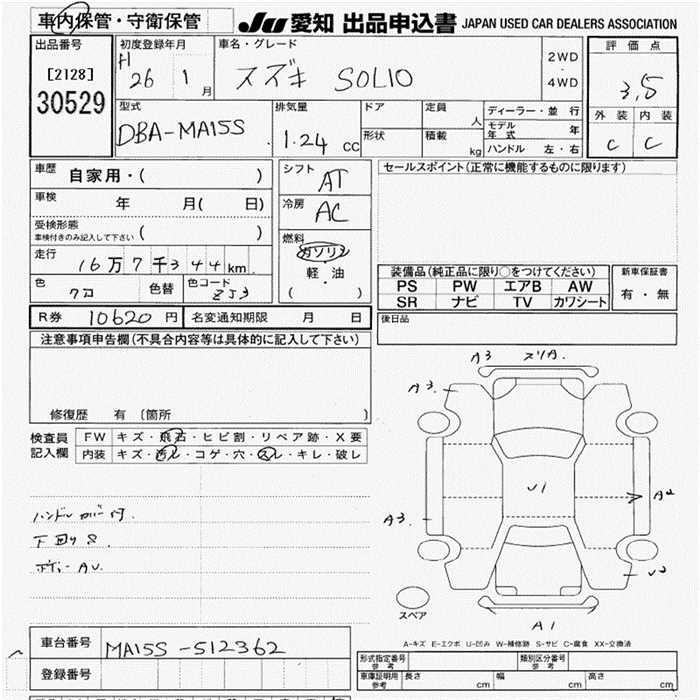 車内保管・守衛保管 JU 愛知 出品申込書 JAPAN USED CAR DEALERS ASSOCIATION
出品番号
[2128]
30529
初度登録年月
H 26 1月
車名・グレード
スズキ SOLIO
2WD
・
4WD
評価点
3.5
外装 内装
C C
型式
DBA-MA15S
排気量
1.24 cc
ドア
形状
定員 人
積載 kg
ディーラー・並行
モデル年式 年
ハンドル 左・右
車歴 自家用・( )
車検 年 月( 日)
受検形態
車検付きのみ記入して下さい ( )
走行 16万7千344km
色
色替
色コード ZJ3
シフト AT
冷房 AC
燃料
ガソリン
・
軽油
( )
セールスポイント(正常に機能するものに限ります)
装備品(純正品に限り○をつけてください)
PS PW エアB AW
SR ナビ TV カワシート
新車保証書
有・無
後日品
R券 10620円 名変通知期限 月 日
注意事項申告欄(不具合内容等は具体的に記入して下さい)
修復歴 有 〔箇所 〕
検査員記入欄
FW キズ・飛石・ヒビ割・リペア跡・X要
内装 キズ・汚レ・コゲ・穴・スレ・キレ・破レ
ハンドルカバー付.
下回りS
ボディーAU.
A3 スリA.
A3.
U1
A2
A3.
U2
A1
スペア
A-キズ E-エクボ U-凹み W-補修跡 S-サビ C-腐食 XX-交換済
車台番号 MA15S-512362
登録番号
形式指定番号参考
類別区分番号参考
車庫証明用参考 長さ cm 幅 cm 高さ cm